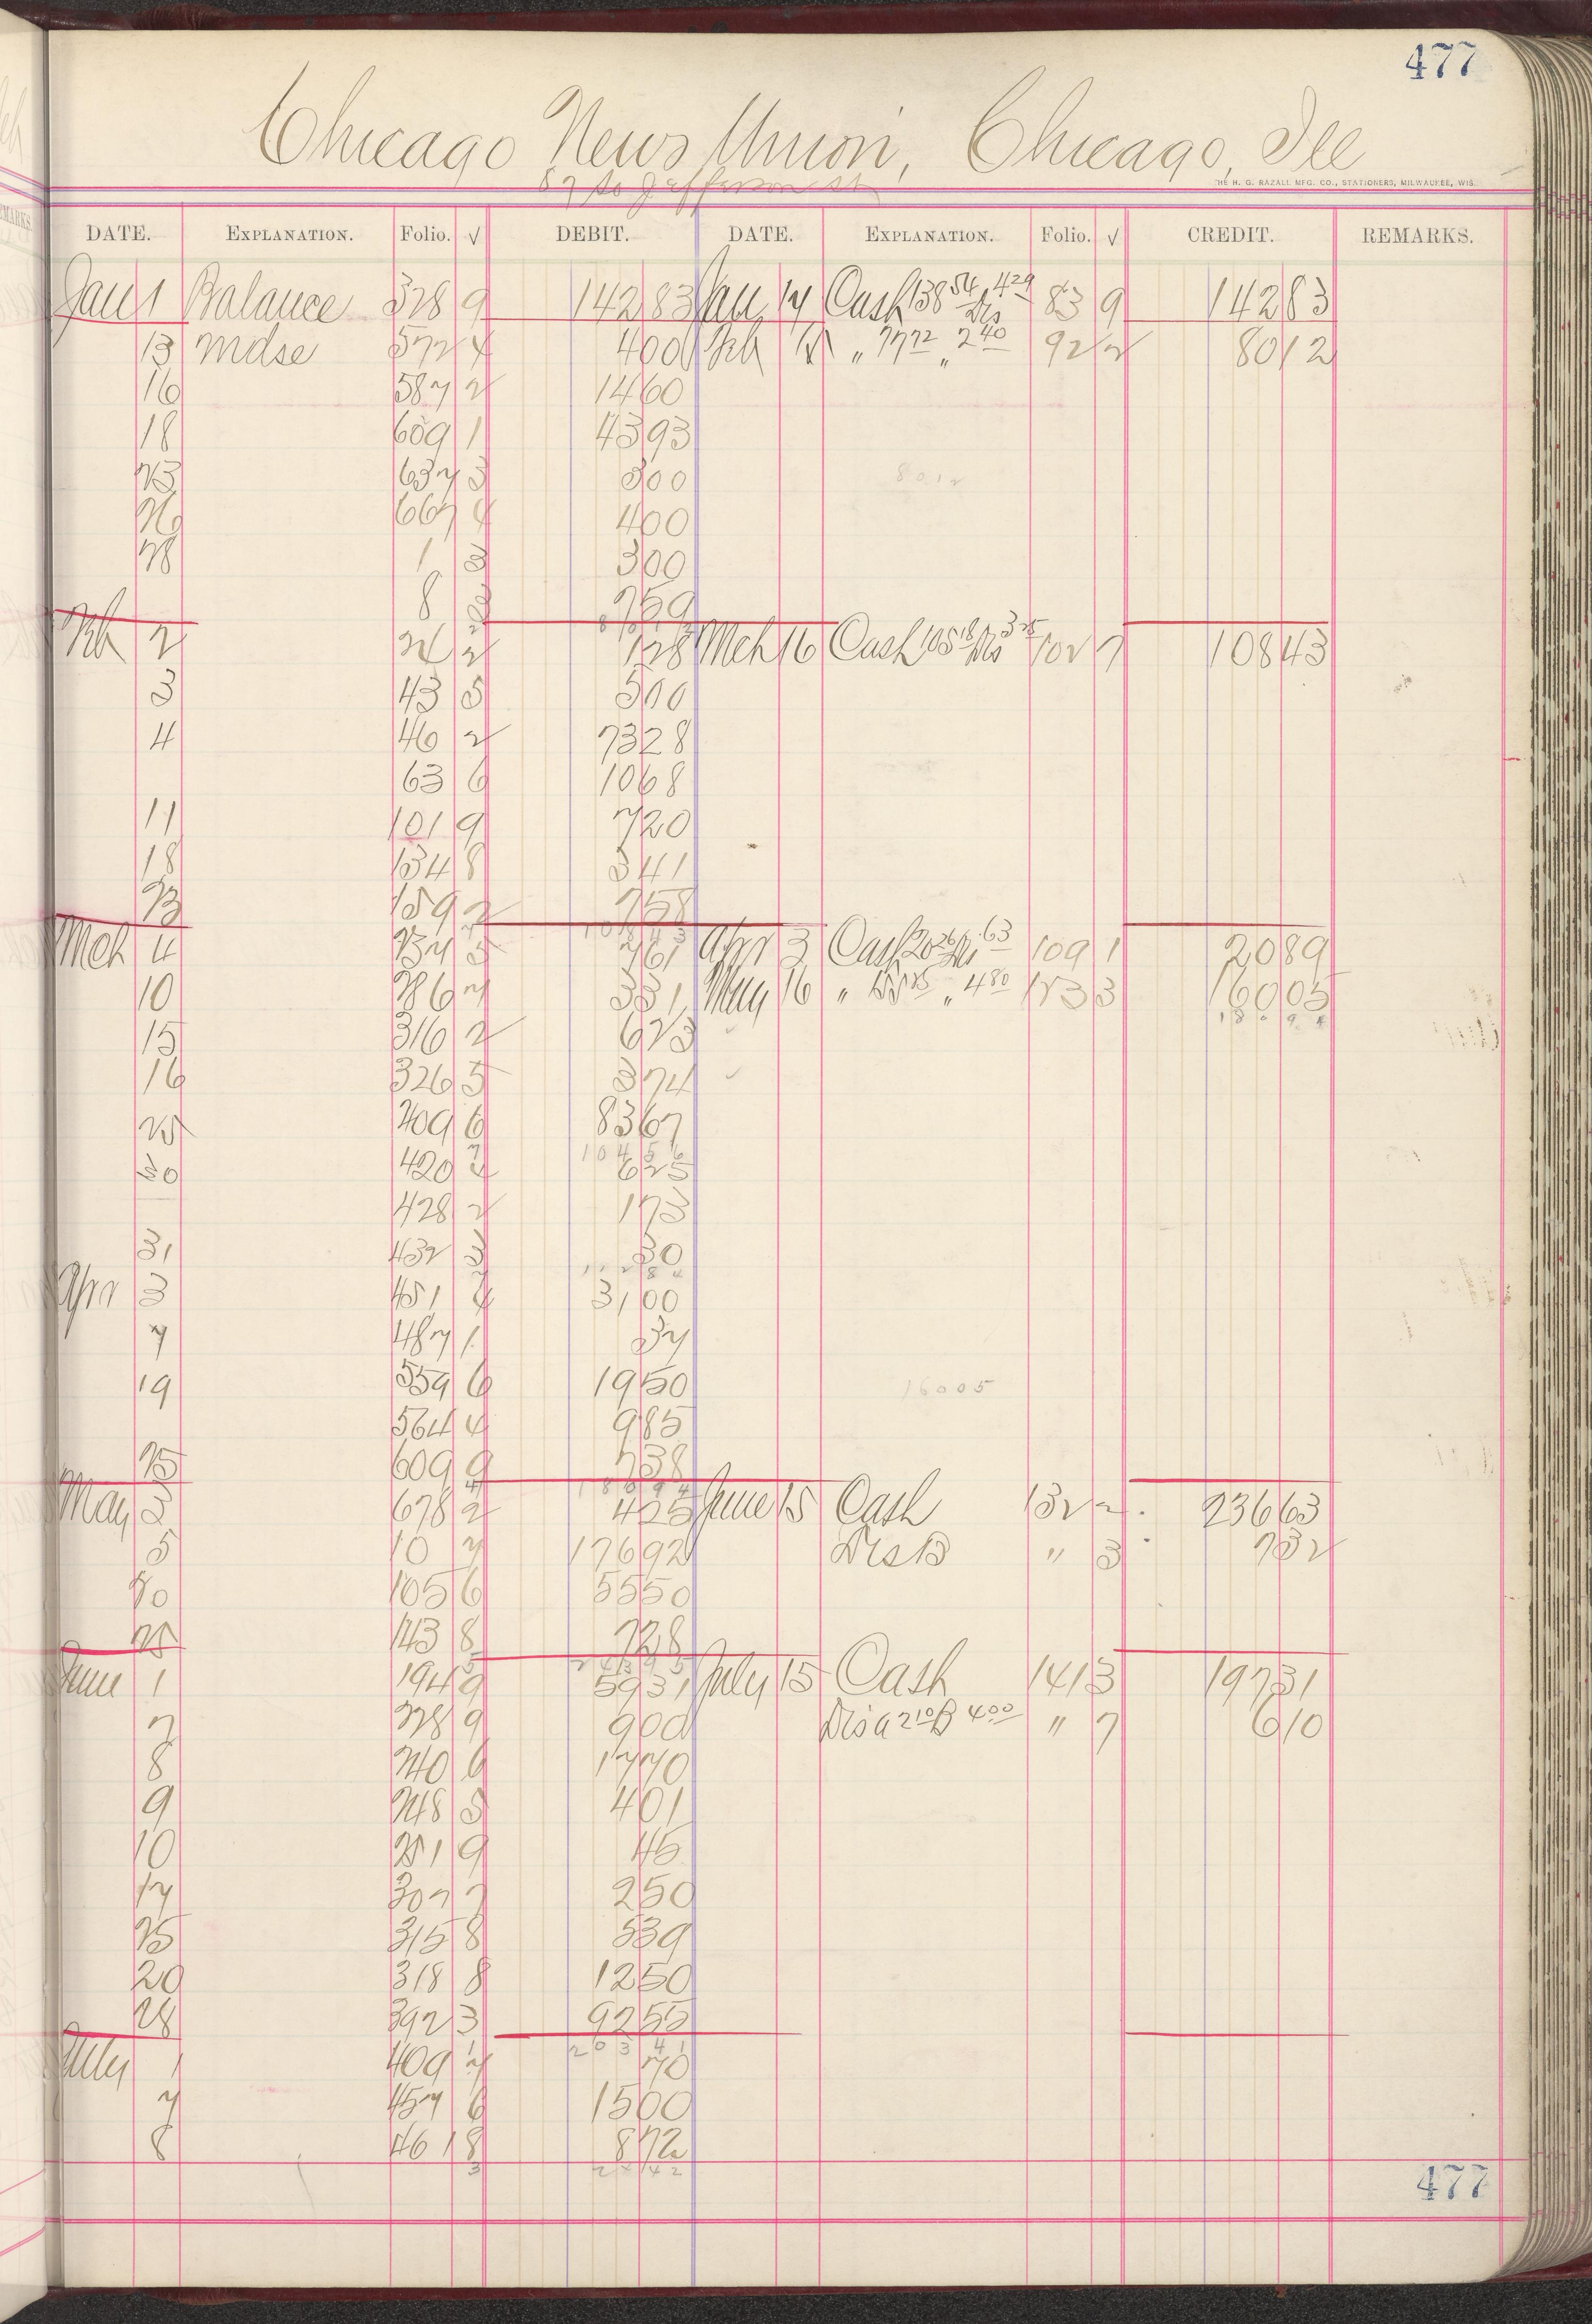 477
Chicago News Union, Chicago, Ill
87 So Jefferson St
THE H. G. RAZALL MFG. CO., STATIONERS, MILWAUKEE, WIS.
DATE. EXPLANATION. Folio. √ DEBIT. DATE. EXPLANATION. Folio. √ CREDIT. REMARKS.
Jan 1 Balance 328 9 142 83 Jan 14 Cash 138 54 Dis 4 29 83 9 142 83
13 Mdse 572 4 4 00 Feb " 77 72 " 2 40 92 2 80 12
16 587 2 14 60
18 609 1 43 93
23 637 3 3 00 80 12
26 667 4 4 00
28 1 3 3 00
8 2 7 59
80 12
Feb 2 26 2 1 28 Mch 16 Cash 105 18 Dis 3 25 102 7 108 43
3 43 5 5 00
4 46 2 73 28
63 6 10 68
11 101 9 7 20
18 134 8 3 41
23 159 2 7 58
108 43
Mch 4 234 5 7 61 Apr 3 Cash 20 26 Dis 63 109 1 20 89
10 286 7 3 31 May 16 " 155 25 " 4 80 123 3 160 05
15 316 2 6 23 180 94
16 326 5 3 74
25 409 6 83 67
104 56
30 420 4 6 25
428 2 1 73
31 432 3 30
112 84
Apr 3 451 4 31 00
7 487 1 37
19 559 6 19 50 160 05
564 4 9 85
25 609 9 7 38
180 94
May 3 678 2 4 25 June 15 Cash 132 2 236 63
5 10 7 176 92 Dis B " 3 7 32
20 105 6 55 50
25 143 8 7 28
243 95
June 1 194 9 59 31 July 15 Cash 141 3 197 31
7 228 9 9 00 Dis A 2 10 B 4 00 " 7 6 10
8 240 6 17 70
9 248 5 4 01
10 251 9 45
17 307 7 2 50
25 315 8 5 39
20 318 8 12 50
28 392 3 92 55
203 41
July 1 409 7 70
7 457 6 15 00
8 461 8 8 72
3 24 42
477